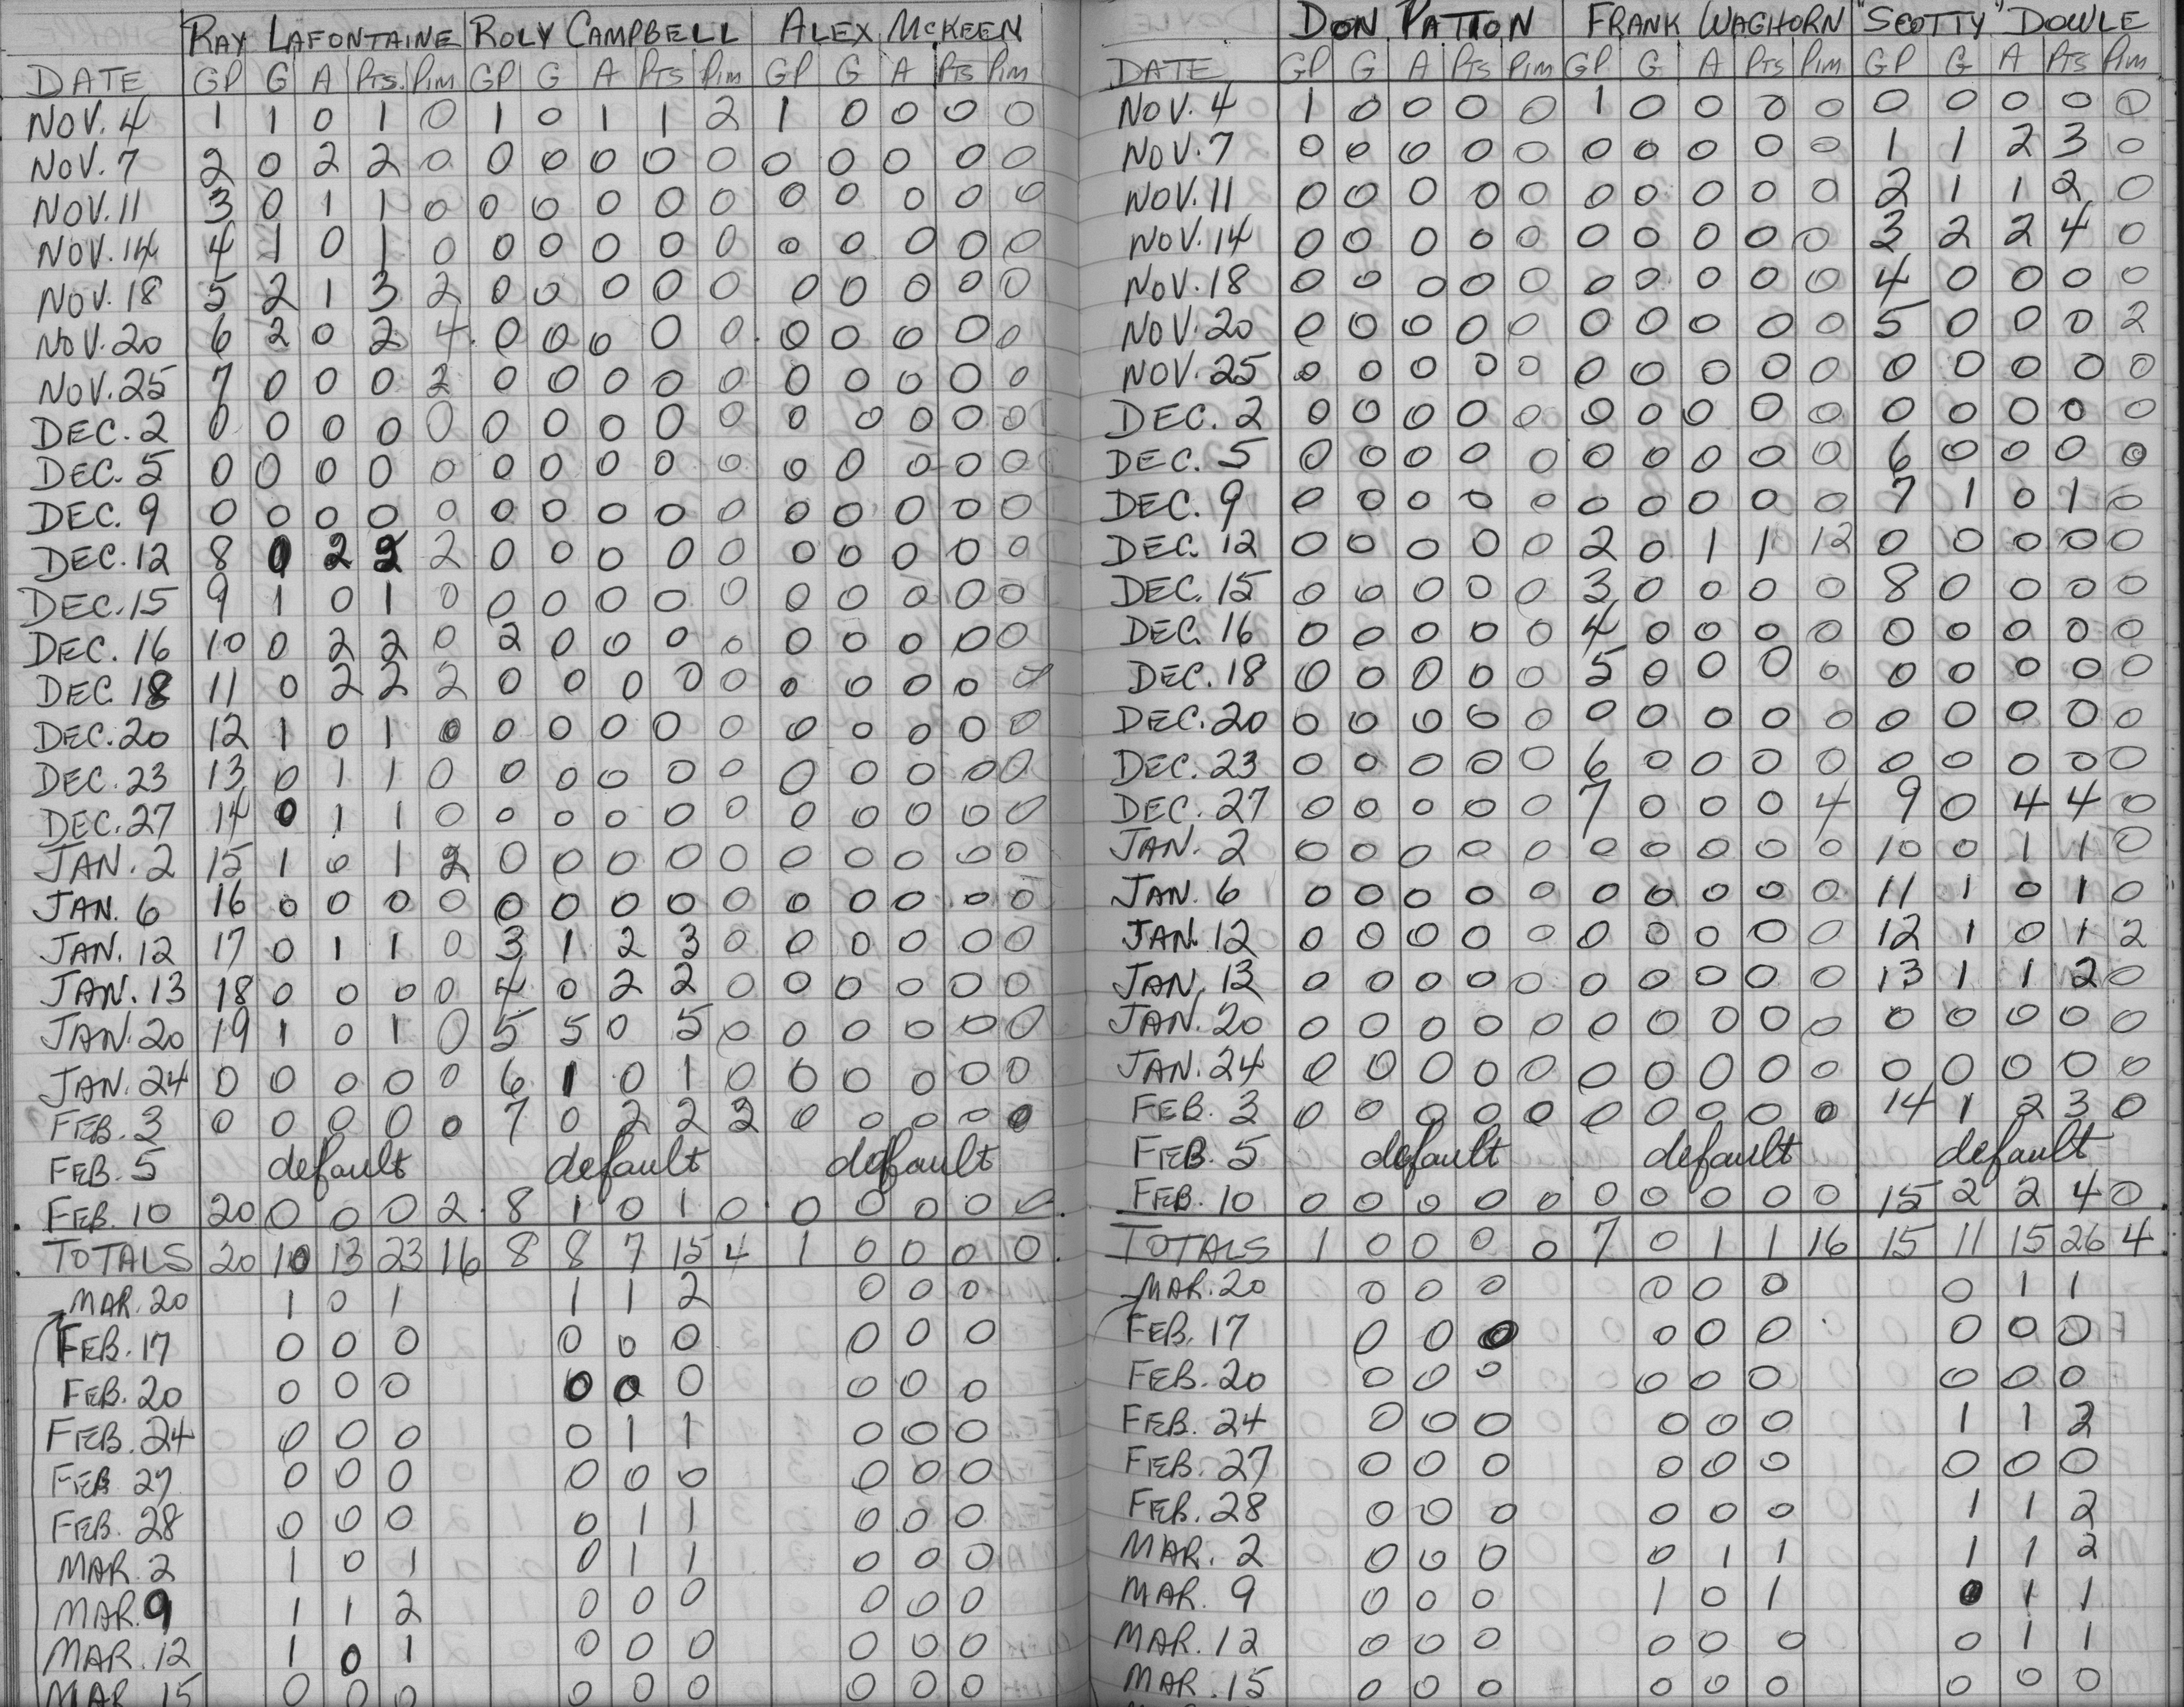 RAY LAFONTAINE ROLY CAMPBELL ALEX MCKEEN
DATE GP G A Pts. Pim GP G A Pts Pim GP G A Pts Pim
NOV. 4 1 1 0 1 0 1 0 1 1 2 1 0 0 0 0
NOV. 7 2 0 2 2 0 0 0 0 0 0 0 0 0 0 0
NOV. 11 3 0 1 1 0 0 0 0 0 0 0 0 0 0 0
NOV. 14 4 1 0 1 0 0 0 0 0 0 0 0 0 0 0
NOV. 18 5 2 1 3 2 0 0 0 0 0 0 0 0 0 0
NOV. 20 6 2 0 2 4 0 0 0 0 0 0 0 0 0 0
NOV. 25 7 0 0 0 2 0 0 0 0 0 0 0 0 0 0
DEC. 2 0 0 0 0 0 0 0 0 0 0 0 0 0 0 0
DEC. 5 0 0 0 0 0 0 0 0 0 0 0 0 0 0 0
DEC. 9 0 0 0 0 0 0 0 0 0 0 0 0 0 0 0
DEC. 12 8 0 2 2 2 0 0 0 0 0 0 0 0 0 0
DEC. 15 9 1 0 1 0 0 0 0 0 0 0 0 0 0 0
DEC. 16 10 0 2 2 0 2 0 0 0 0 0 0 0 0 0
DEC. 18 11 0 2 2 2 0 0 0 0 0 0 0 0 0 0
DEC. 20 12 1 0 1 0 0 0 0 0 0 0 0 0 0 0
DEC. 23 13 0 1 1 0 0 0 0 0 0 0 0 0 0 0
DEC. 27 14 0 1 1 0 0 0 0 0 0 0 0 0 0 0
JAN. 2 15 1 0 1 2 0 0 0 0 0 0 0 0 0 0
JAN. 6 16 0 0 0 0 0 0 0 0 0 0 0 0 0 0
JAN. 12 17 0 1 1 0 3 1 2 3 0 0 0 0 0 0
JAN. 13 18 0 0 0 0 4 0 2 2 0 0 0 0 0 0
JAN. 20 19 1 0 1 0 5 5 0 5 0 0 0 0 0 0
JAN. 24 0 0 0 0 0 6 1 0 1 0 0 0 0 0 0
FEB. 3 0 0 0 0 0 7 0 2 2 2 0 0 0 0 0
FEB. 5 default default default
FEB. 10 20 0 0 0 2 8 1 0 1 0 0 0 0 0 0
TOTALS 20 10 13 23 16 8 8 7 15 4 1 0 0 0 0
MAR. 20 1 0 1 1 1 2 0 0 0
FEB. 17 0 0 0 0 0 0 0 0 0
FEB. 20 0 0 0 0 0 0 0 0 0
FEB. 24 0 0 0 0 1 1 0 0 0
FEB. 27 0 0 0 0 0 0 0 0 0
FEB. 28 0 0 0 0 1 1 0 0 0
MAR. 2 1 0 1 0 1 1 0 0 0
MAR. 9 1 1 2 0 0 0 0 0 0
MAR. 12 1 0 1 0 0 0 0 0 0
MAR. 15 0 0 0 0 0 0 0 0 0
DON PATTON FRANK WAGHORN "SCOTTY" DOWLE
DATE GP G A Pts Pim GP G A Pts Pim GP G A Pts Pim
NOV. 4 1 0 0 0 0 1 0 0 0 0 0 0 0 0 0
NOV. 7 0 0 0 0 0 0 0 0 0 0 1 1 2 3 0
NOV. 11 0 0 0 0 0 0 0 0 0 0 2 1 1 2 0
NOV. 14 0 0 0 0 0 0 0 0 0 0 3 2 2 4 0
NOV. 18 0 0 0 0 0 0 0 0 0 0 4 0 0 0 0
NOV. 20 0 0 0 0 0 0 0 0 0 0 5 0 0 0 2
NOV. 25 0 0 0 0 0 0 0 0 0 0 0 0 0 0 0
DEC. 2 0 0 0 0 0 0 0 0 0 0 0 0 0 0 0
DEC. 5 0 0 0 0 0 0 0 0 0 0 6 0 0 0 0
DEC. 9 0 0 0 0 0 0 0 0 0 0 7 1 0 1 0
DEC. 12 0 0 0 0 0 2 0 1 1 12 0 0 0 0 0
DEC. 15 0 0 0 0 0 3 0 0 0 0 8 0 0 0 0
DEC. 16 0 0 0 0 0 4 0 0 0 0 0 0 0 0 0
DEC. 18 0 0 0 0 0 5 0 0 0 0 0 0 0 0 0
DEC. 20 0 0 0 0 0 0 0 0 0 0 0 0 0 0 0
DEC. 23 0 0 0 0 0 6 0 0 0 0 0 0 0 0 0
DEC. 27 0 0 0 0 0 7 0 0 0 4 9 0 4 4 0
JAN. 2 0 0 0 0 0 0 0 0 0 0 10 0 1 1 0
JAN. 6 0 0 0 0 0 0 0 0 0 0 11 1 0 1 0
JAN. 12 0 0 0 0 0 0 0 0 0 0 12 1 0 1 2
JAN. 13 0 0 0 0 0 0 0 0 0 0 13 1 1 2 0
JAN. 20 0 0 0 0 0 0 0 0 0 0 0 0 0 0 0
JAN. 24 0 0 0 0 0 0 0 0 0 0 0 0 0 0 0
FEB. 3 0 0 0 0 0 0 0 0 0 0 14 1 2 3 0
FEB. 5 default default default
FEB. 10 0 0 0 0 0 0 0 0 0 0 15 2 2 4 0
TOTALS 1 0 0 0 0 7 0 1 1 16 15 11 15 26 4
MAR. 20 0 0 0 0 0 0 0 1 1
FEB. 17 0 0 0 0 0 0 0 0 0
FEB. 20 0 0 0 0 0 0 0 0 0
FEB. 24 0 0 0 0 0 0 1 1 2
FEB. 27 0 0 0 0 0 0 0 0 0
FEB. 28 0 0 0 0 0 0 1 1 2
MAR. 2 0 0 0 0 1 1 1 1 2
MAR. 9 0 0 0 1 0 1 0 1 1
MAR. 12 0 0 0 0 0 0 0 1 1
MAR. 15 0 0 0 0 0 0 0 0 0